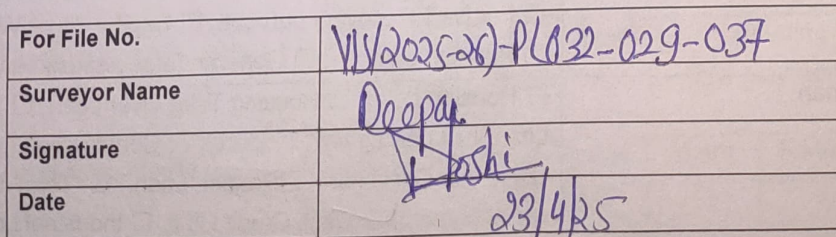 For File No. VIS(2025-26)-PL032-029-037
Surveyor Name Deepak
Signature Joshi
Date 23/4/25